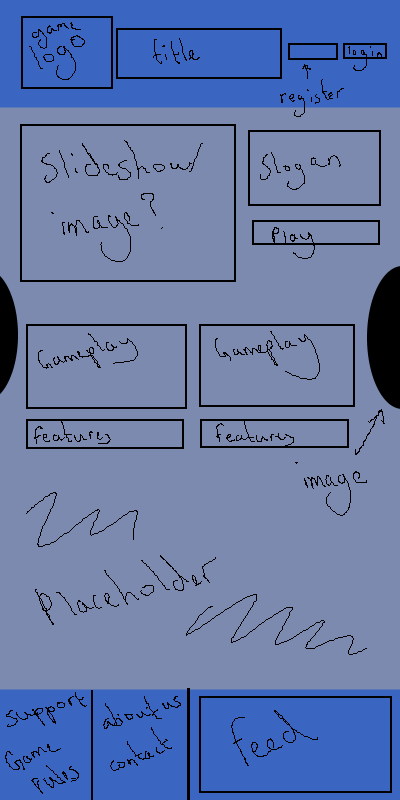 game
logo
title
login
register
Slideshow/
image?
Slogan
Play
Gameplay
Gameplay
features
features
image
Placeholder
support
Game
rules
about us
contact
feed